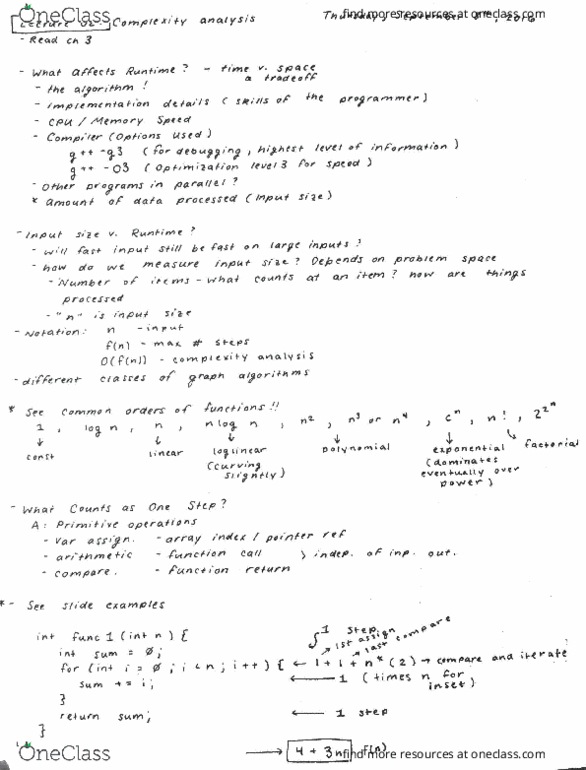 OneClass
find more resources at oneclass.com
Lecture 02: Complexity analysis Thursday, September 8th, 2016
- Read ch 3
- What affects Runtime? - time v. space
a tradeoff
- the algorithm!
- implementation details (skills of the programmer)
- CPU / Memory Speed
- Compiler (Options Used)
g++ -g3 (for debugging, highest level of information)
g++ -O3 (Optimization level 3 for speed)
- Other programs in parallel?
* amount of data processed (Input size)
- Input size v. Runtime?
- will fast input still be fast on large inputs?
- how do we measure input size? Depends on problem space
- Number of items - what counts at an item? how are things
processed
- "n" is input size
- Notation: n - input
f(n) - max # steps
O(f(n)) - complexity analysis
- different classes of graph algorithms
* See common orders of functions!!
1, log n, n, n log n, n², n³ or n⁴, cⁿ, n!, 2^2^n
↓ ↓ ↓ ↓ ↓ ↘
const linear loglinear polynomial exponential factorial
(curving slightly) (dominates eventually over power)
- What Counts as One Step?
A: Primitive operations
- var assign. - array index / pointer ref
- arithmetic - function call } indep. of inp. out.
- compare. - function return
* - See slide examples
1 step
1st assign
last compare
int func1 (int n) {
int sum = 0;
for (int i = 0; i < n; i++) { ← 1 + 1 + n * (2) → compare and iterate
sum += i; ← 1 (times n for
inset)
}
return sum; ← 1 step
}
→ 4 + 3n f(n)
OneClass
find more resources at oneclass.com